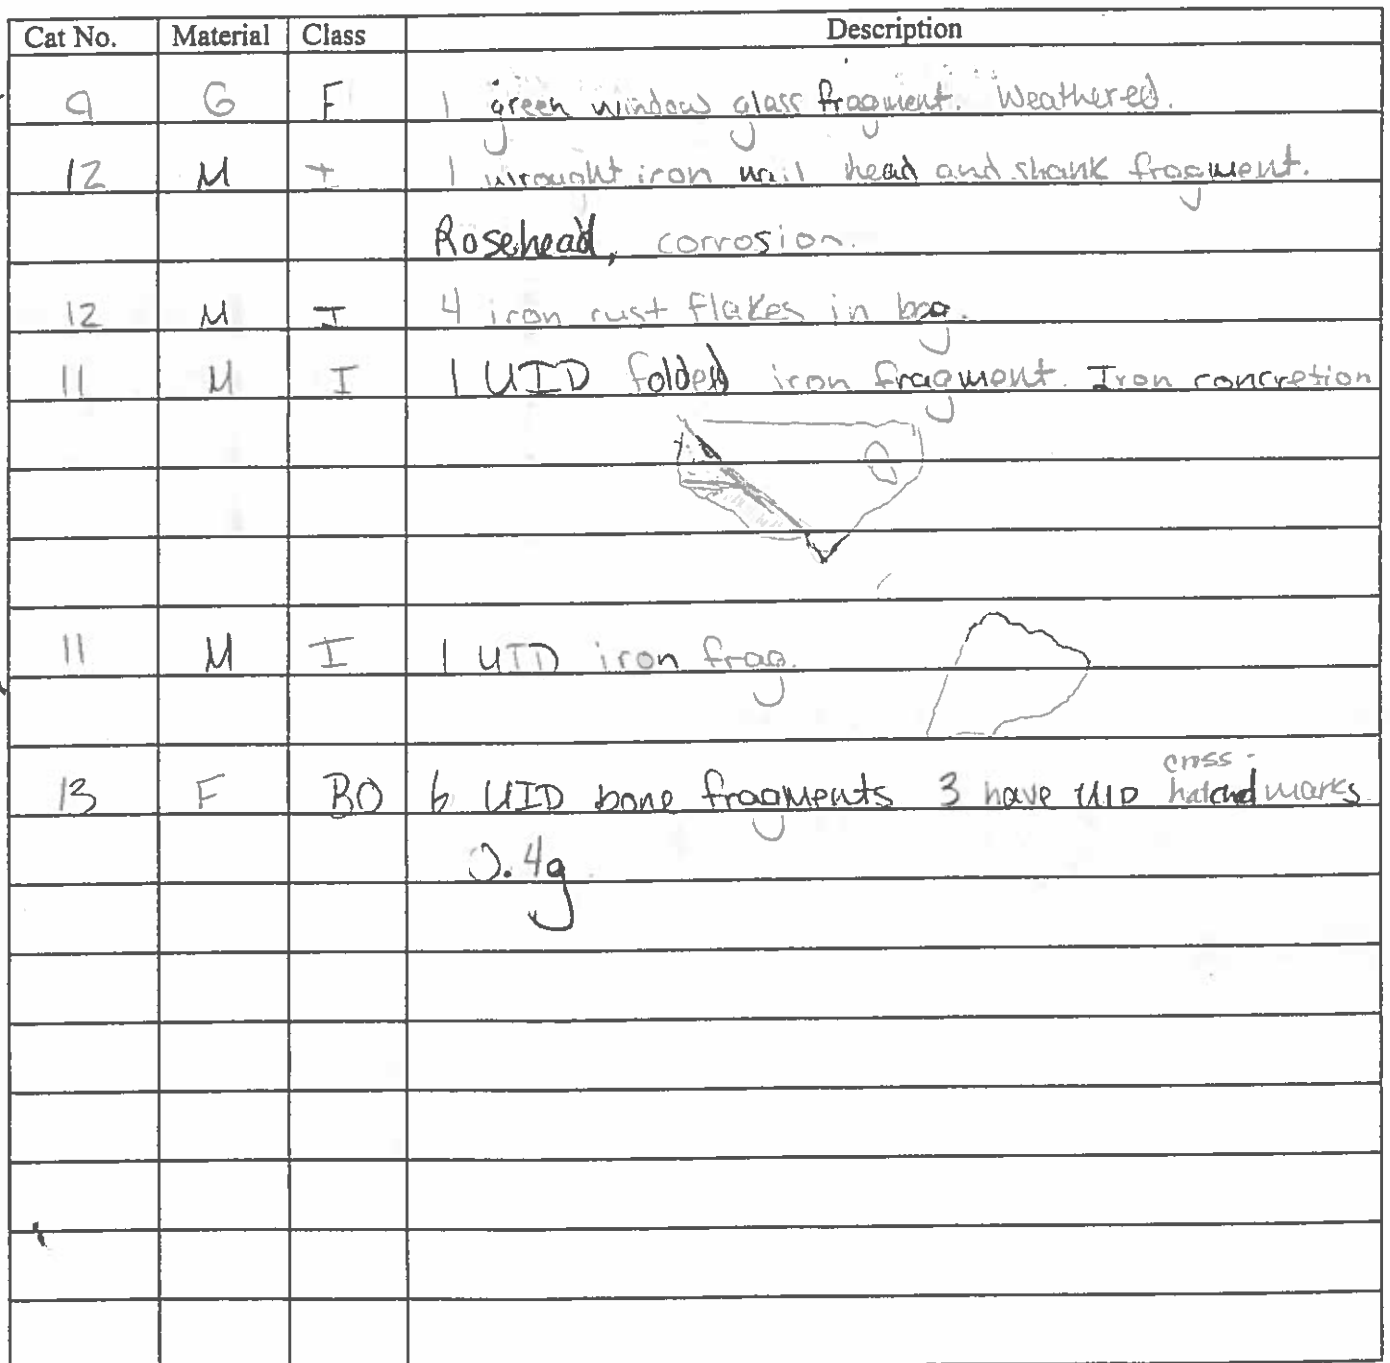 Cat No. Material Class Description
9 G F 1 green window glass fragment. Weathered.
12 M I 1 wrought iron nail head and shank fragment.
Rosehead, corrosion.
12 M I 4 iron rust flakes in bag.
11 M I 1 UID folded iron fragment. Iron concretion
11 M I 1 UID iron frag.
13 F BO 6 UID bone fragments 3 have UID cross-hatched marks
0.4g